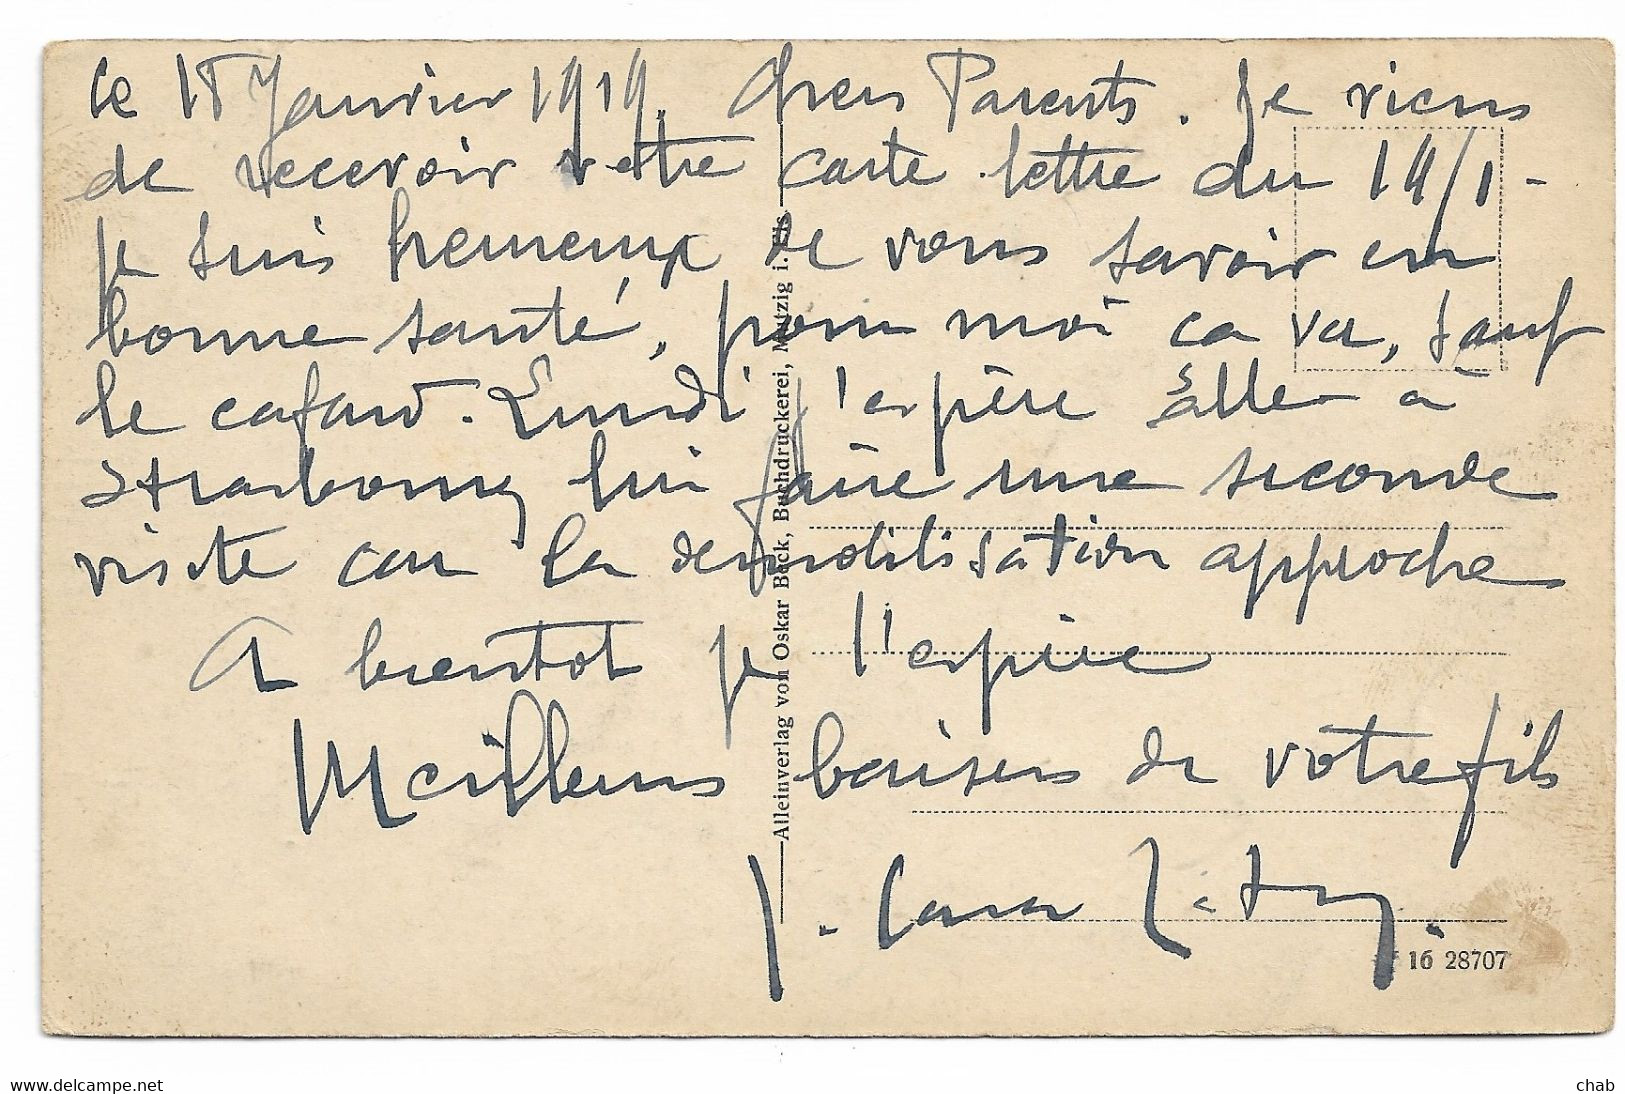 le 18 Janvier 1919. Chers Parents. Je viens
de recevoir votre carte lettre du 14/1 -
je suis heureux de vous savoir en
bonne santé, pour moi ca va, sauf
le cafard. Lundi j'espère aller à
Strasbourg lui faire une seconde
visite car la démobilisation approche
A bientot je l'espère
Meilleurs baisers de votre fils
J.
Alleinverlag von Oskar Beck, Buchdruckerei, Mutzig i. Els.
16 28707
www.delcampe.net
chab